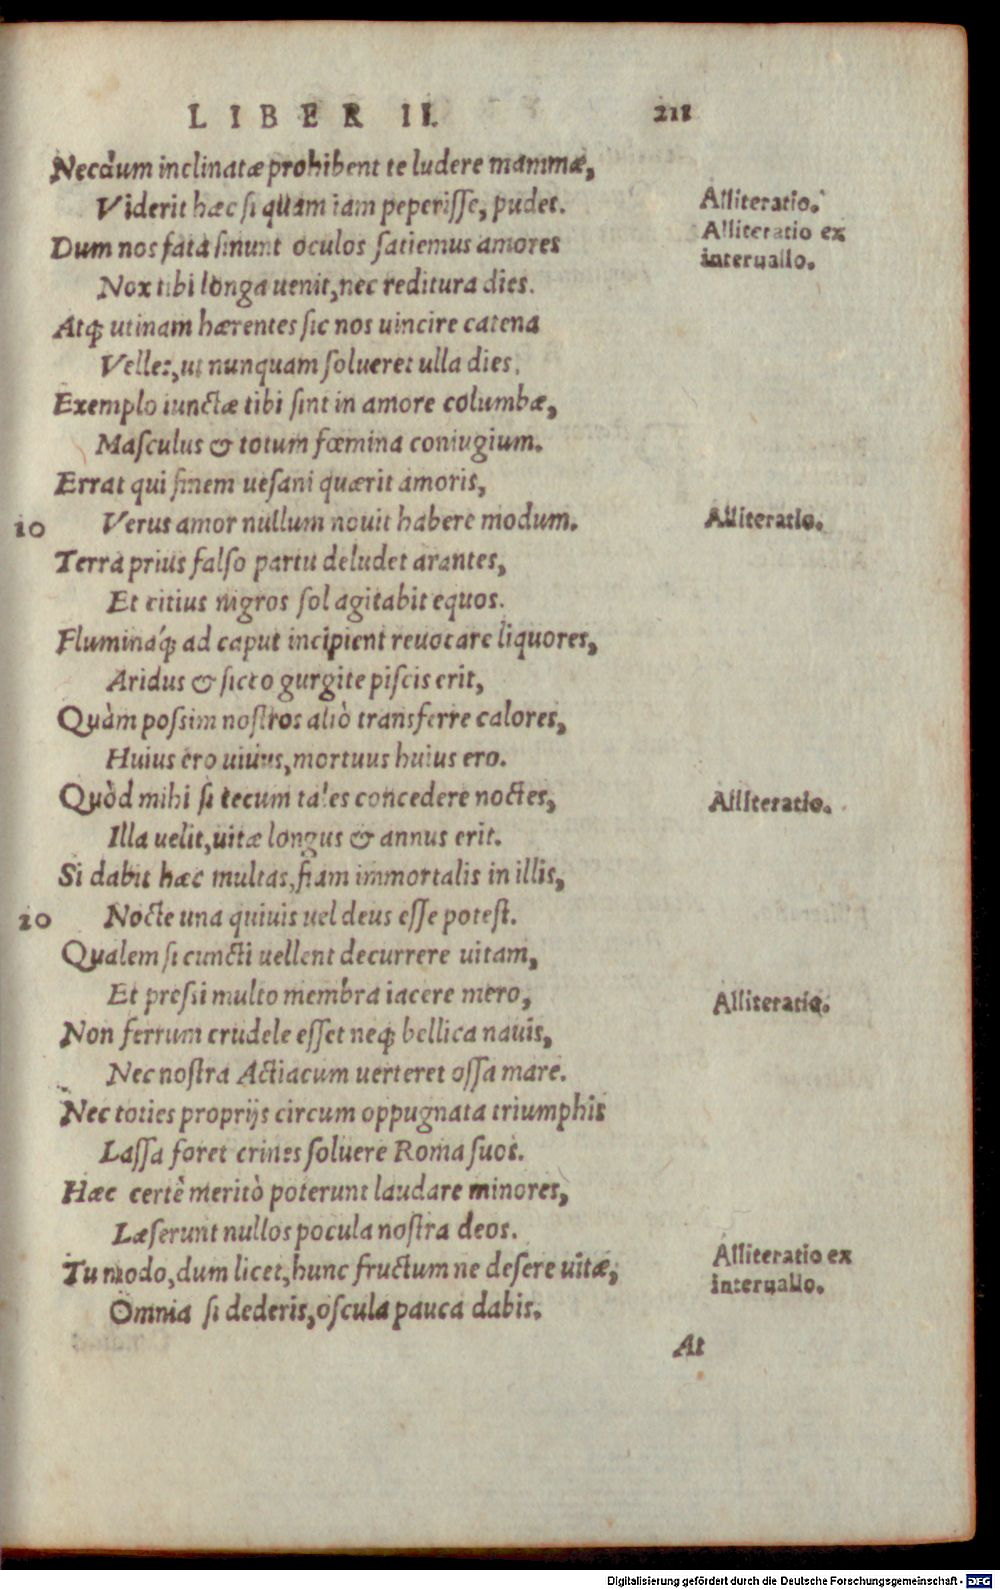 LIBER II. 218
Necdum inclinatæ prohibent te ludere mammæ,
Viderit hæc si quam iam peperisse, pudet. Alliteratio.
Dum nos fata sinunt oculos satiemus amores Alliteratio ex
interuallo.
Nox tibi longa uenit, nec reditura dies.
Atq; utinam hærentes sic nos uincire catena
Velles, ut nunquam solueret ulla dies.
Exemplo iunctæ tibi sint in amore columbæ,
Masculus & totum fœmina coniugium.
Errat qui finem uesani quærit amoris,
10 Verus amor nullum nouit habere modum. Alliteratio.
Terra prius falso partu deludet arantes,
Et citius nigros sol agitabit equos.
Fluminaq́; ad caput incipient reuocare liquores,
Aridus & sicco gurgite piscis erit,
Quàm possim nostros aliò transferre calores,
Huius ero uiuus, mortuus huius ero.
Quòd mihi si tecum tales concedere noctes, Alliteratio.
Illa uelit, uitæ longus & annus erit.
Si dabit hæc multas, fiam immortalis in illis,
20 Nocte una quiuis uel deus esse potest.
Qualem si cuncti uellent decurrere uitam,
Et pressi multo membra iacere mero, Alliteratio.
Non ferrum crudele esset neq; bellica nauis,
Nec nostra Actiacum uerteret ossa mare.
Nec toties proprijs circum oppugnata triumphis
Lassa foret crines soluere Roma suos.
Hæc certè meritò poterunt laudare minores,
Læserunt nullos pocula nostra deos.
Tu modo, dum licet, hunc fructum ne desere uitæ; Alliteratio ex
interuallo.
Omnia si dederis, oscula pauca dabis.
At
Digitalisierung gefördert durch die Deutsche Forschungsgemeinschaft - DFG